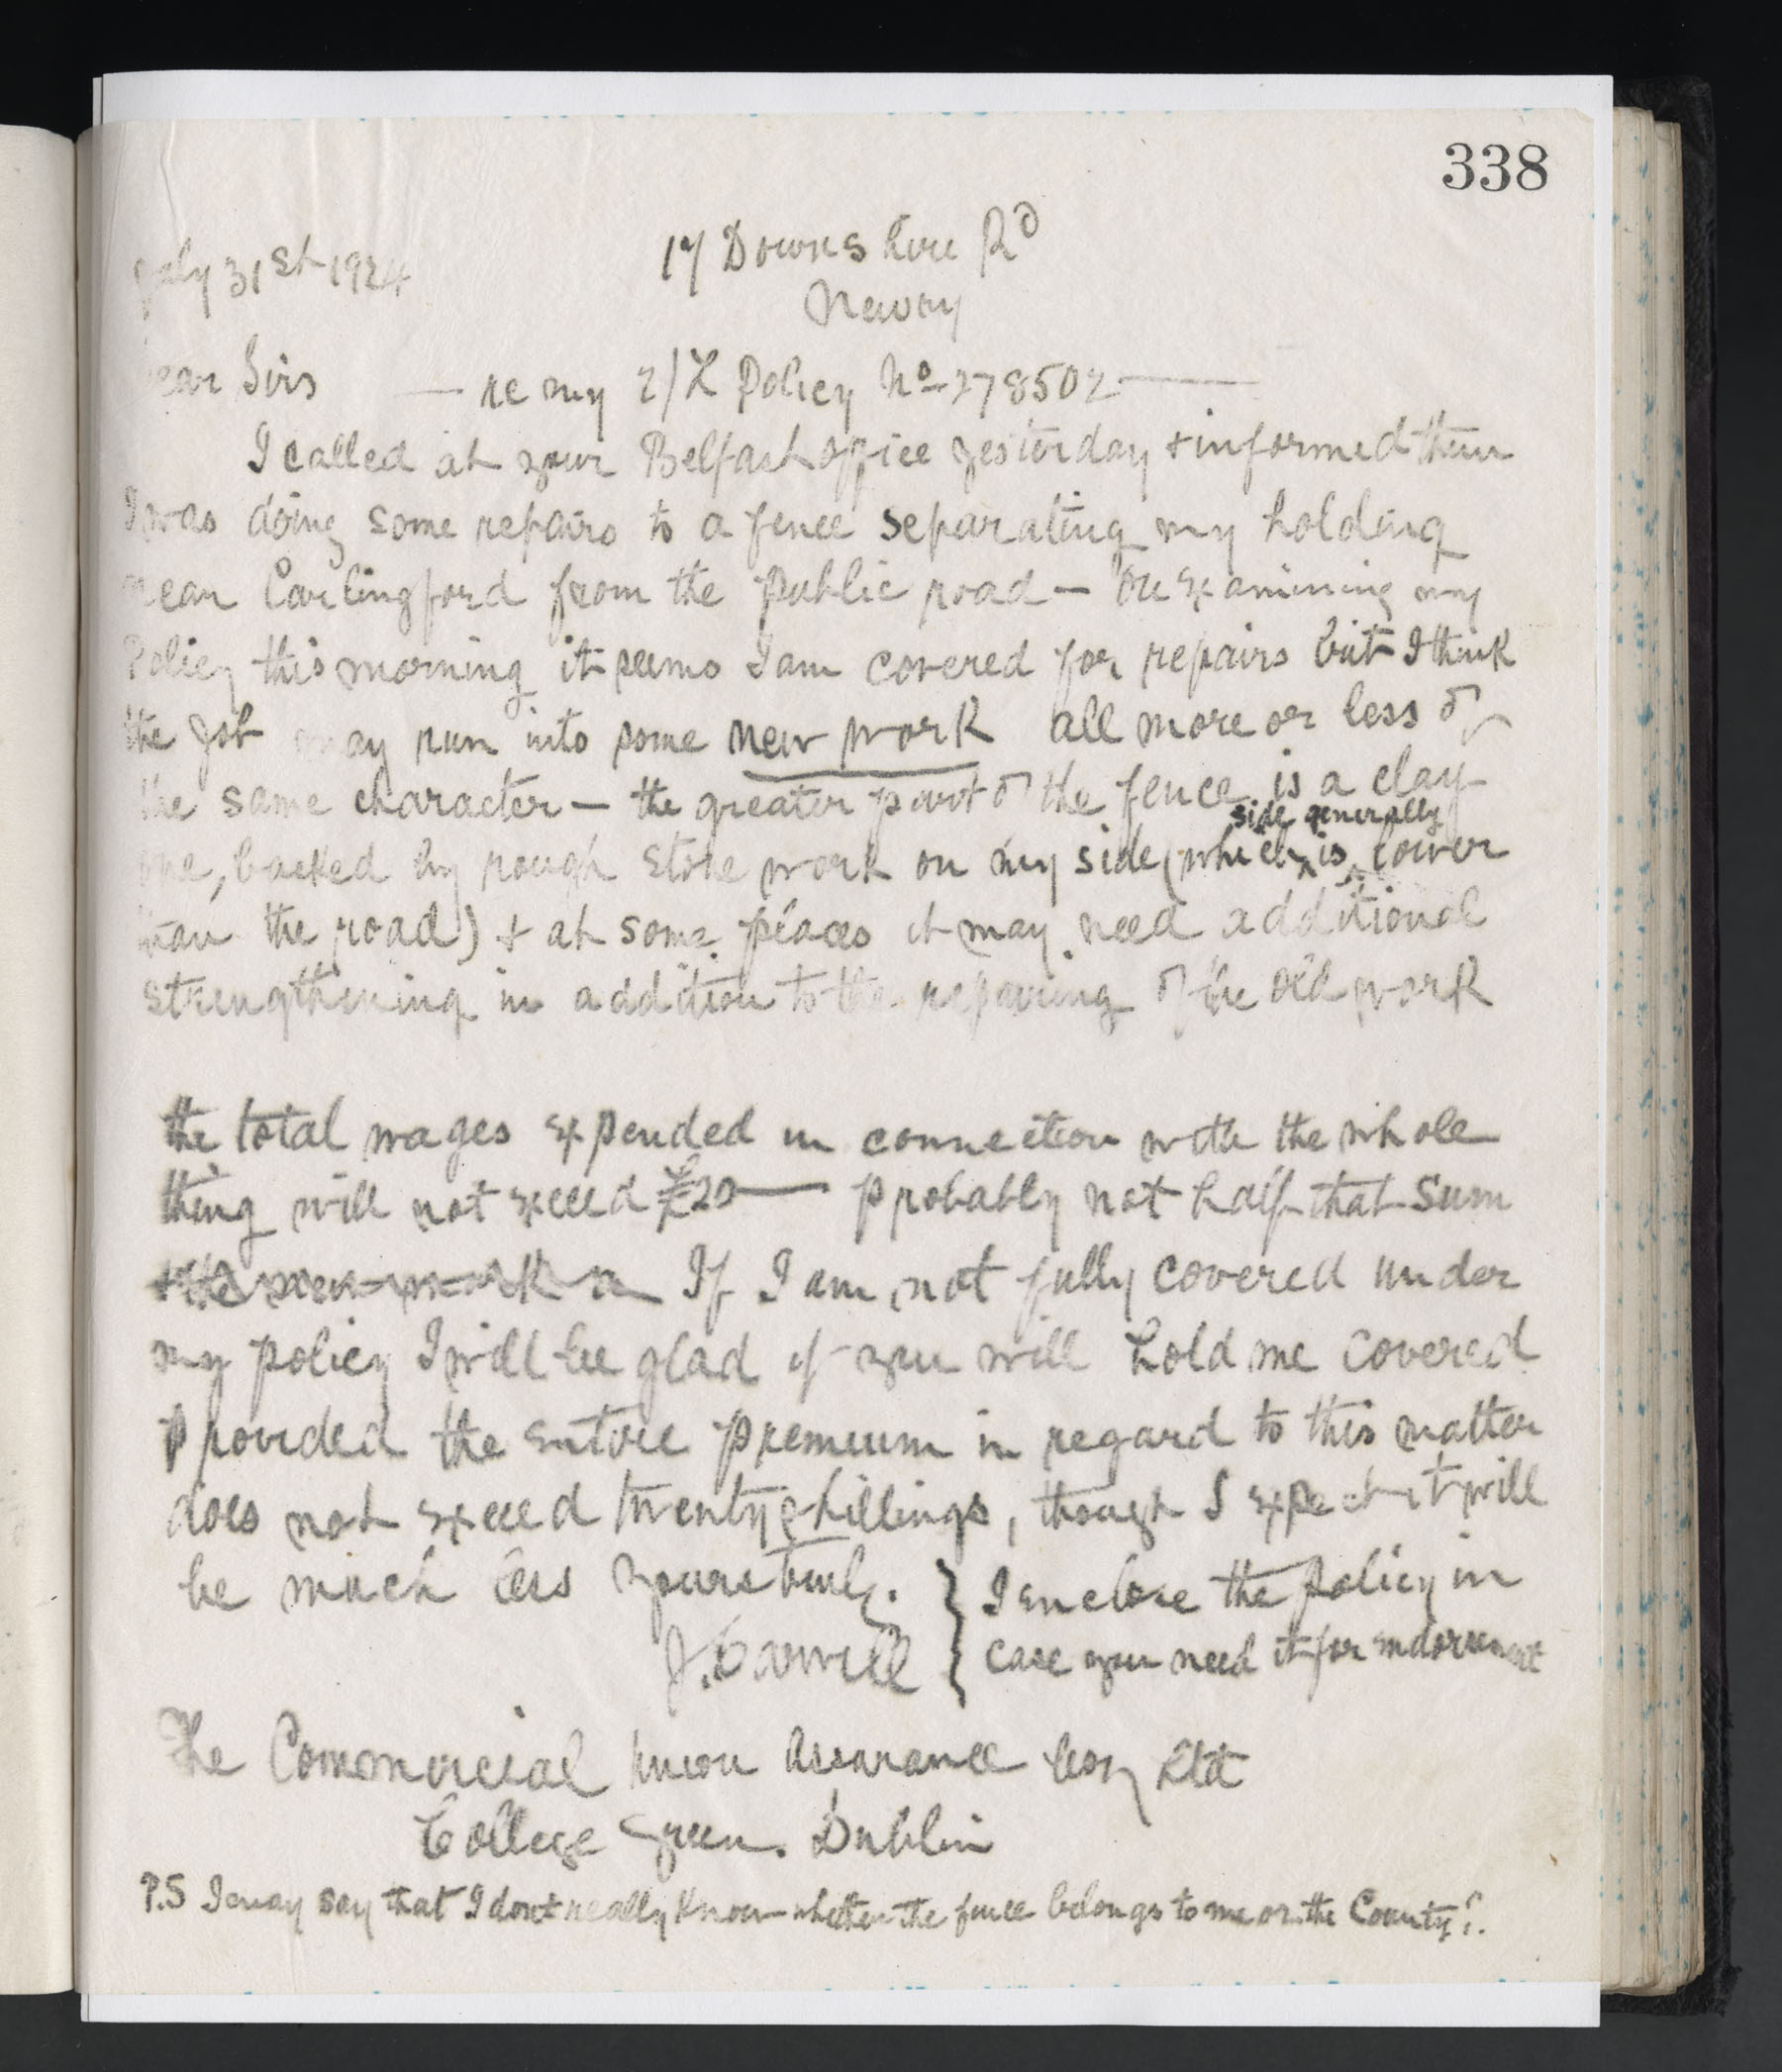 338
17 Downshire Rd
July 31st 1924
Newry
Dear Sirs — re my E/L Policy No 278502 —
I called at your Belfast office yesterday + informed them
I was doing some repairs to a fence separating my holding
near Carlingford from the public road — On examining my
Policy this morning it seems I am covered for repairs but I think
the job may run into some new work all more or less of
the same character — the greater part of the fence is a clay
side generally
one, backed by rough stone work on my side (which is lower
than the road) + at some places it may need additional
strengthening in addition to the repairing of the old work
the total wages expended in connection with the whole
thing will not exceed £20 — probably not half that sum
+ the new work If I am not fully covered under
my policy I will be glad if you will hold me covered
provided the entire premium in regard to this matter
does not exceed twenty shillings, though I expect it will
be much less Yours truly. } I enclose the policy in
J. Carvill } case you need it for indorsement
The Commercial Union Assurance Coy Ltd
College Green. Dublin
P.S I may say that I dont really know whether the fence belongs to me or the County?.